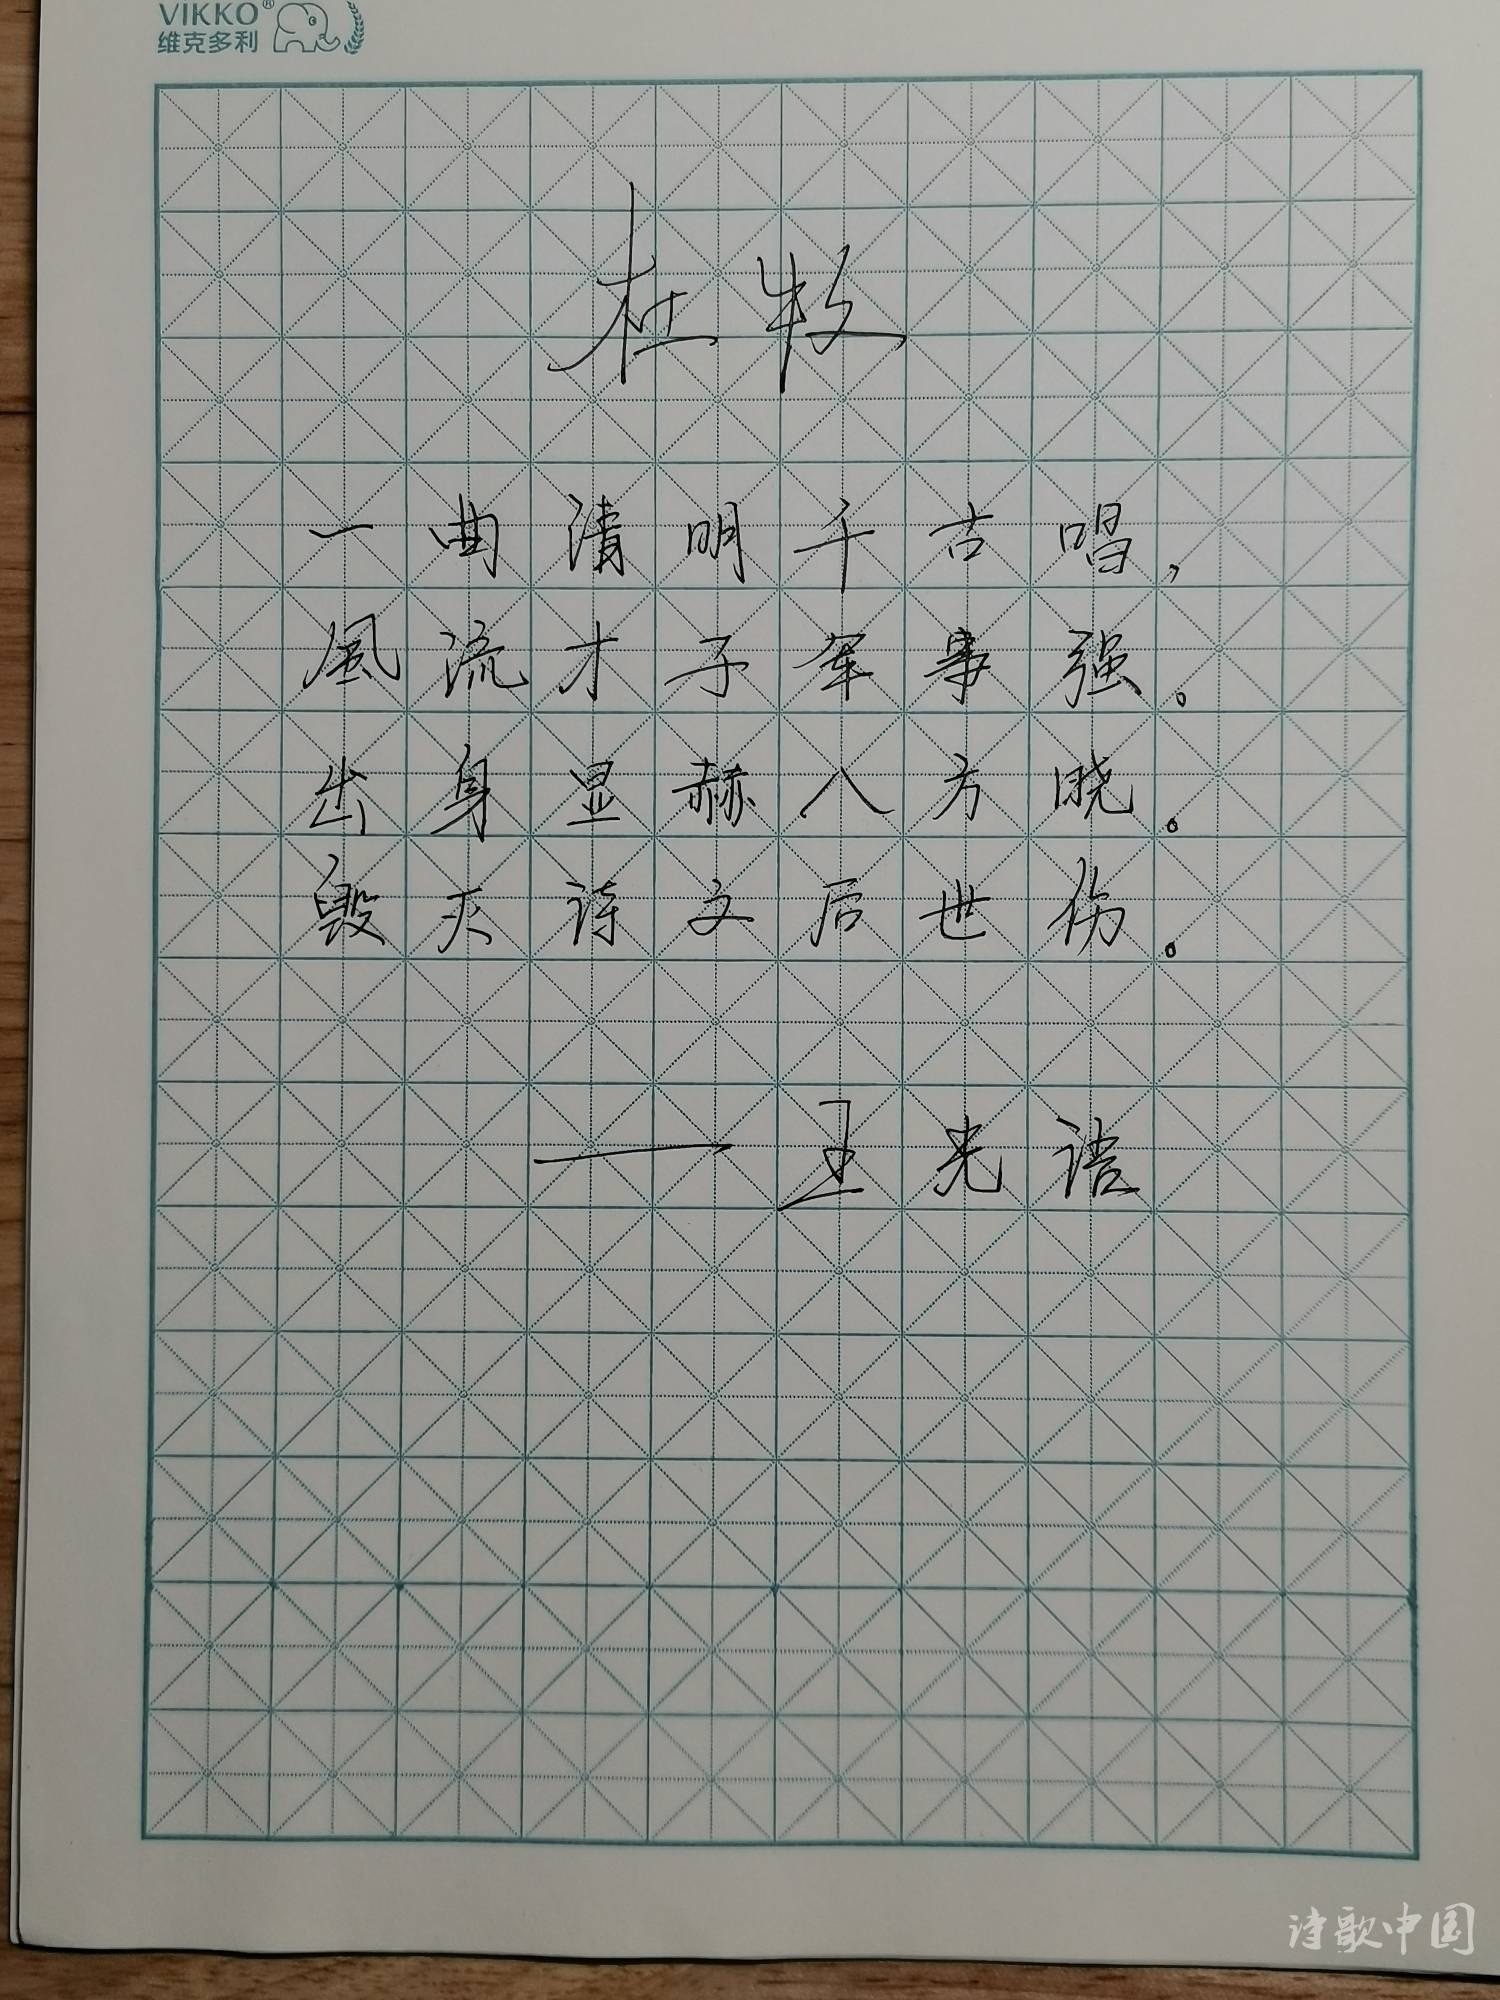 VIKKO®
维克多利
杜牧
一曲清明千古唱,
風流才子军事强。
出身显赫八方晓。
毁灭诗文后世伤。
——王光语
诗歌中国